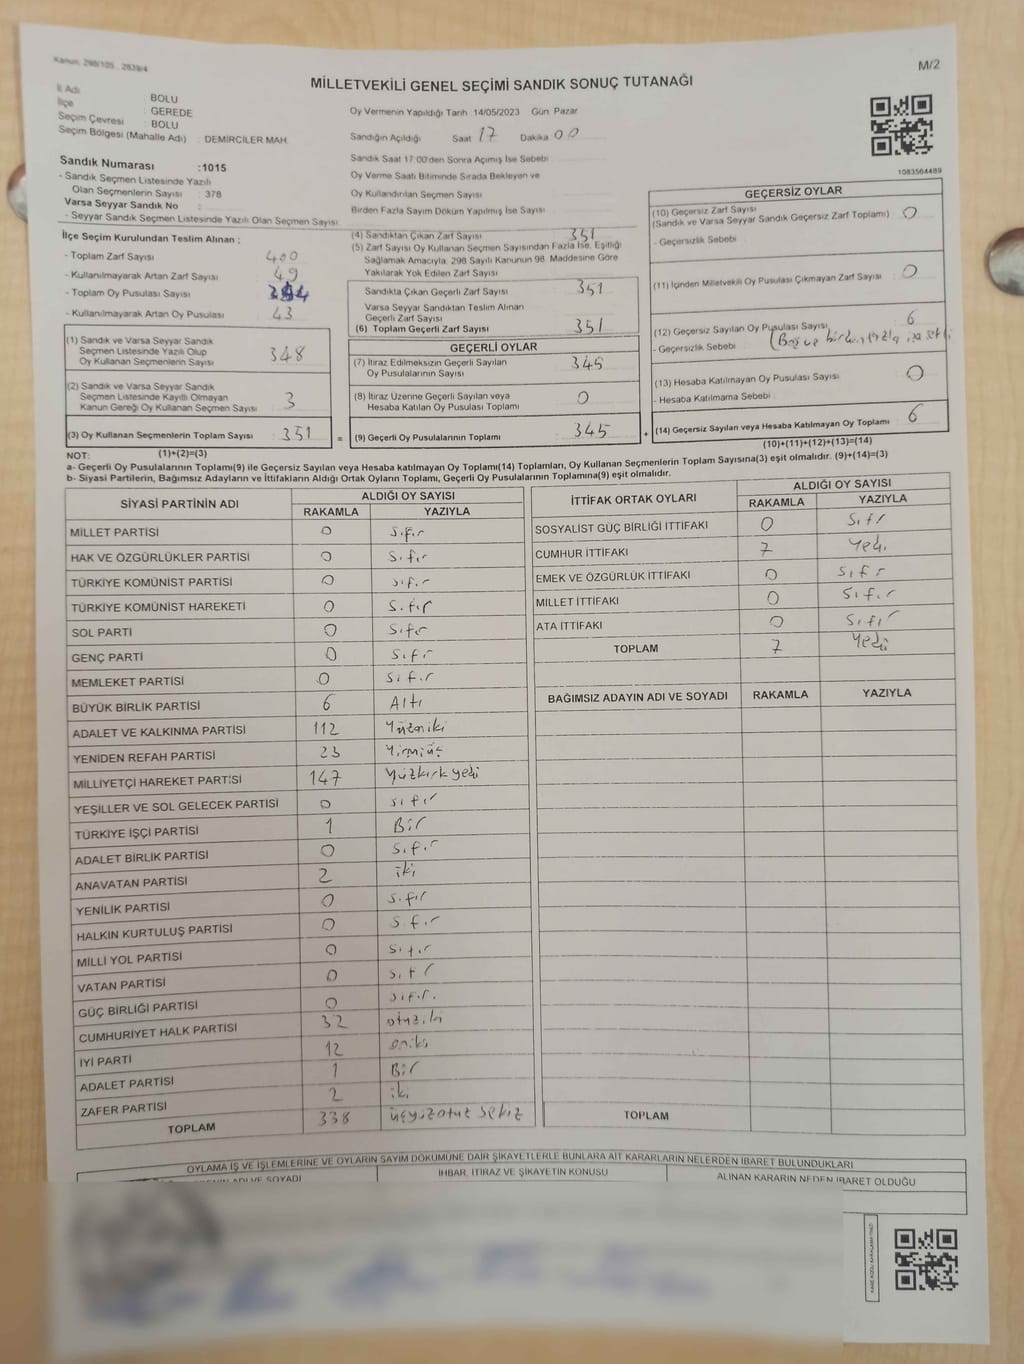 Kanun: 298/105 2839/4
M/2
MİLLETVEKİLİ GENEL SEÇİMİ SANDIK SONUÇ TUTANAĞI
İl Adı : BOLU
İlçe : GEREDE
Seçim Çevresi : BOLU
Seçim Bölgesi (Mahalle Adı) : DEMİRCİLER MAH.
Oy Vermenin Yapıldığı Tarih :14/05/2023 Gün: Pazar
Sandığın Açıldığı Saat 17 Dakika 00
Sandık Saat 17:00'den Sonra Açımış İse Sebebi
Oy Verme Saati Bitiminde Sırada Bekleyen ve
Oy Kullandırılan Seçmen Sayısı
Birden Fazla Sayım Döküm Yapılmış İse Sayısı
1083564489
Sandık Numarası :1015
- Sandık Seçmen Listesinde Yazılı
Olan Seçmenlerin Sayısı : 378
Varsa Seyyar Sandık No
- Seyyar Sandık Seçmen Listesinde Yazılı Olan Seçmen Sayısı
İlçe Seçim Kurulundan Teslim Alınan :
- Toplam Zarf Sayısı 400
- Kullanılmayarak Artan Zarf Sayısı 49
- Toplam Oy Pusulası Sayısı
- Kullanılmayarak Artan Oy Pusulası 43
(1) Sandık ve Varsa Seyyar Sandık
Seçmen Listesinde Yazılı Olup
Oy Kullanan Seçmenlerin Sayısı 348
(2) Sandık ve Varsa Seyyar Sandık
Seçmen Listesinde Kayıtlı Olmayan
Kanun Gereği Oy Kullanan Seçmen Sayısı 3
(3) Oy Kullanan Seçmenlerin Toplam Sayısı 351 =
(1)+(2)=(3)
(4) Sandıktan Çıkan Zarf Sayısı 351
(5) Zarf Sayısı Oy Kullanan Seçmen Sayısından Fazla İse, Eşitliği
Sağlamak Amacıyla, 298 Sayılı Kanunun 98. Maddesine Göre
Yakılarak Yok Edilen Zarf Sayısı
Sandıkta Çıkan Geçerli Zarf Sayısı 351
Varsa Seyyar Sandıktan Teslim Alınan
Geçerli Zarf Sayısı
(6) Toplam Geçerli Zarf Sayısı 351
GEÇERLİ OYLAR
(7) İtiraz Edilmeksizin Geçerli Sayılan
Oy Pusulalarının Sayısı 345
(8) İtiraz Üzerine Geçerli Sayılan veya
Hesaba Katılan Oy Pusulası Toplamı 0
(9) Geçerli Oy Pusulalarının Toplamı 345 +
GEÇERSİZ OYLAR
(10) Geçersiz Zarf Sayısı
(Sandık ve Varsa Seyyar Sandık Geçersiz Zarf Toplamı) 0
- Geçersizlik Sebebi
(11) İçinden Milletvekili Oy Pusulası Çıkmayan Zarf Sayısı 0
(12) Geçersiz Sayılan Oy Pusulası Sayısı 6
- Geçersizlik Sebebi
(13) Hesaba Katılmayan Oy Pusulası Sayısı 0
- Hesaba Katılmama Sebebi
(14) Geçersiz Sayılan veya Hesaba Katılmayan Oy Toplamı 6
(10)+(11)+(12)+(13)=(14)
NOT:
a- Geçerli Oy Pusulalarının Toplamı(9) ile Geçersiz Sayılan veya Hesaba katılmayan Oy Toplamı(14) Toplamları, Oy Kullanan Seçmenlerin Toplam Sayısına(3) eşit olmalıdır. (9)+(14)=(3)
b- Siyasi Partilerin, Bağımsız Adayların ve İttifakların Aldığı Ortak Oyların Toplamı, Geçerli Oy Pusulalarının Toplamına(9) eşit olmalıdır.
SİYASİ PARTİNİN ADI ALDIĞI OY SAYISI
RAKAMLA YAZIYLA
MİLLET PARTİSİ 0 sıfır
HAK VE ÖZGÜRLÜKLER PARTİSİ 0 sıfır
TÜRKİYE KOMÜNİST PARTİSİ 0 sıfır
TÜRKİYE KOMÜNİST HAREKETİ 0 sıfır
SOL PARTİ 0 sıfır
GENÇ PARTİ 0 sıfır
MEMLEKET PARTİSİ 0 sıfır
BÜYÜK BİRLİK PARTİSİ 6 Altı
ADALET VE KALKINMA PARTİSİ 112 Yüzoniki
YENİDEN REFAH PARTİSİ 23 Yirmiüç
MİLLİYETÇİ HAREKET PARTİSİ 147 Yüzkırkyedi
YEŞİLLER VE SOL GELECEK PARTİSİ 0 sıfır
TÜRKİYE İŞÇİ PARTİSİ 1 Bir
ADALET BİRLİK PARTİSİ 0 sıfır
ANAVATAN PARTİSİ 2 iki
YENİLİK PARTİSİ 0 sıfır
HALKIN KURTULUŞ PARTİSİ 0 sıfır
MİLLİ YOL PARTİSİ 0 sıfır
VATAN PARTİSİ 0 sıfır
GÜÇ BİRLİĞİ PARTİSİ 0 sıfır.
CUMHURİYET HALK PARTİSİ 32 otuziki
İYİ PARTİ 12 oniki
ADALET PARTİSİ 1 Bir
ZAFER PARTİSİ 2 iki
TOPLAM 338 üçyüzotuz sekiz
İTTİFAK ORTAK OYLARI ALDIĞI OY SAYISI
RAKAMLA YAZIYLA
SOSYALİST GÜÇ BİRLİĞİ İTTİFAKI 0 sıfır
CUMHUR İTTİFAKI 7 Yedi
EMEK VE ÖZGÜRLÜK İTTİFAKI 0 sıfır
MİLLET İTTİFAKI 0 sıfır
ATA İTTİFAKI 0 sıfır
TOPLAM 7 Yedi
BAĞIMSIZ ADAYIN ADI VE SOYADI RAKAMLA YAZIYLA
TOPLAM
OYLAMA İŞ VE İŞLEMLERİNE VE OYLARIN SAYIM DÖKÜMÜNE DAİR ŞİKAYETLERLE BUNLARA AİT KARARLARIN NELERDEN İBARET BULUNDUKLARI
İHBAR, İTİRAZ VE ŞİKAYETİN KONUSU
ALINAN KARARIN NEDEN İBARET OLDUĞU